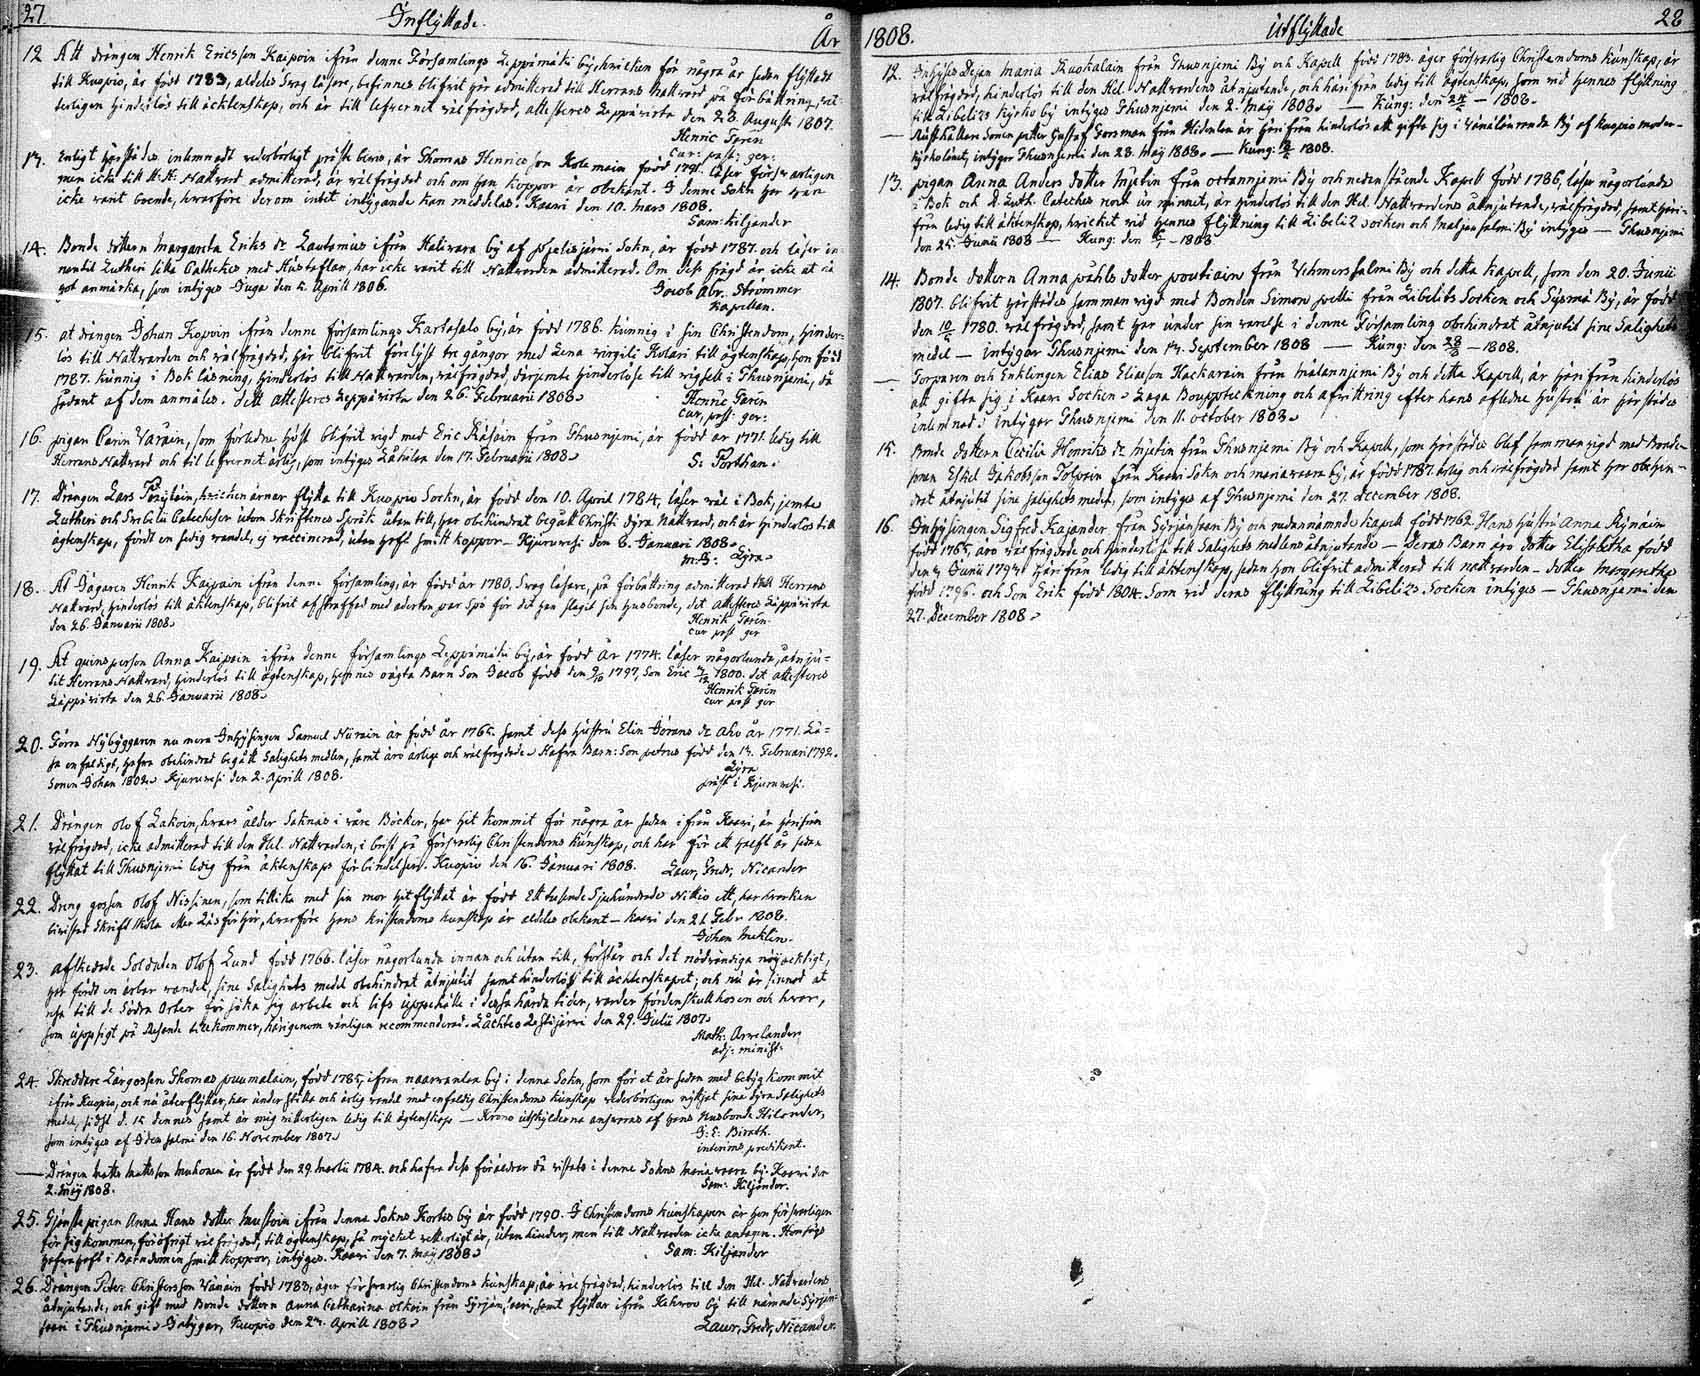 27
Inflyttade.
År
12. Att drängen Henrik Ericsson Kaipain ifrån denne Församlings Leppämäki by, hvilken för några år sedan flyttadt
till Kuopio, är född 1783, aldeles svag läsare, befinnes blifvit här admitterad till Herrans Nattvard på förbättring, vet-
terligen hinderlös till äcktenskap, och är till lefvernet välfrägdad, attesteres Leppävirta den 23. Augusti 1807.
Henric Forén
cur: past: ger:
13. Enligt härstädes inlemnadt vederbörligt präste bevis, är Thomas Henricsson född 1791. läser försvarligen
men icke till H. H. Nattvard admitterad, är välfrägdad och om han koppor är obekant. I denne Sokn har
icke varit boende, hvarföre derom intet intygande kan meddelas. Kaavi den 10. Mars 1808.
Sam: Kiljander
14. Bonde dottern Margareta Eriks dr Lautamus ifrån Halivara by af Pjelisjärvi Sokn, är född 1787. och läser in-
nantil Lutheri lilla Cathekes med Hustaflan, har icke varit till Nattvarden admitterad. Om dess frägd är icke at nå
got anmärka, som intygas Juga den 4. Aprill 1806.
Jacob Abr. Strömmer
Kapellan.
15. at drängen Johan Kopoin ifrån denne församlings Kartasalo by, är född 1786. kunnig i sin Christendom, hinder-
lös till Nattvarden och välfrägdad, här blifvit förelyst tre gångor med Lena Virgili Kolari till ägtenskap, hon född
1787. kunnig i Bok läsning, hinderlös till Nattvarden, välfrägdad, därjemte hinderlöse till vigsell i Thusnjemi, då
sådant af dem anmäles. dett attesteres Leppävirta den 26. Februarii 1808.
Henric Forén
cur, past: ger:
16. pigan Carin Varain, som förledne höst blifvit vigd med Eric Räsäin från Thusnjemi, är född år 1771. ledig till
Herrans Nattvard och til lefvernet ärlig, som intygas den 17. Februarii 1808.
S: Porthan.
17. Drängen Lars, hvilken ärnar flytta till Kuopio Sockn, är född den 10. April 1784, läser väl i Bok, jemte
Lutheri och Svebelii Catecheser utom Skriftenes Språk utan till, har obehindrat begått Christi dyra Nattvard, och är hinderlös till
ägtenskap, fördt en sedig vandel, ej vaccinerad, utan haft smitt koppor – Kjuruvesi den 8. Januari 1808.
M: G: Lyra
18. At Jägaren Henrik Kaipain ifrån denne församling, är född år 1780. Svag läsare, på förbättring admitterad till Herrans
Nattvard, hinderlös till äktenskap, blifvit afstraffad med aderton par Spö för det han slagit sin husbonde, det attesteres Leppävirta
den 26. Januarii 1808.
Henrik Forén.
cur past ger
19. At quinsperson Anna Kaipain ifrån denne församlings Leppämäki by, är född år 1774. läser någorlunda, åtnju-
tit Herrans Nattvard, hinderlös till ägtenskap, hennes oägta Barn Son Jacob född den 1797, Son Eric 1800. det attesteres
Leppävirta den 26. Januarii 1808.
Henrik Forén
cur past ger
20. Förra Nybyggaren nu mera Inhysingen Samuel är född år 1765. samt dess hustru Elin Görans dr Aho år 1771. Lä-
sa enfaldigt, hafva obehindrad begått Salighets medlen, samt äro ärlige och välfrägdade. Hafva Barn: Son petrus född den 13. Februari 1792.
Sonen Johan 1802. Kjuruvesi den 2. Aprill 1808.
Lyra
präst i Kjuruvesi.
21. Drängen Olof Lakoin, hvars ålder saknas i våre Böcker, har hit kommit för några år sedan ifrån Kaavi, är härifrån
välfrägdad, icke admitterad till den Hel. Nattvarden, i brist på försvarlig Christendoms kunskap, och har för ett halft år sedan
flyttat till Thusnjemi ledig från äktenskaps förbindelser. Kuopio den 16. Januari 1808.
Laur, Fredr, Nicander
22. Dreng gossen Olof Nissinen, som tillika med sin mor hit flyttat är född Ett tusende Sjuhundrade Nittio ett, har hvarken
bivistad Skrift skola eller Läsförhör, hvarföre hans kristendoms kunskap är aldeles obekant – Kaavi den 21 Febr 1808.
Johan Meklin.
23. afskedade Soldaten Olof Lund född 1766. läser någorlunda innan och utan till, förstår och det nödvändiga nöijacktigt,
har fördt en ärbar vandel, sine Salighets medel obehindrat åtnjutit samt hinderlös till äcktenskapet; och nu är sinnad at
resa till de Södra Orter för söka sig arbete och lifs uppehälle i dessa hårda tider, varder fördenskull hosen och hvar,
som uppsigt på Resande tillkommer, härigenom vänligen recommenderad. den 29. Julii 1807.
Math: Arvelander
adj: minist:
24. Skreddare Lärgossen Thomas puumalain, född 1785, ifrån naarvanlax by i denna Sokn, som för et år sedan med betyg kommit
ifrån Kuopio, och nu återflyttar, har under stilla och ärlig vandel med enfaldig Christendoms kunskap vederbörligen nyttjat sine dyra Salighets
medel, sidst d. 15 dennes samt är mig vitterligen ledig till ägtenskap – Krono utskylderna ansvaras af hans Husbonde Hilander,
som intygas af Idensalmi den 16. November 1807.
G: E: Birath.
interims predikant.
— Drängen Matts Mattsson Muhonen är född den 29. Martii 1784. och hafva dess föräldrar då vistats i denne Sokns Maria vaara by. Kaavi den
2. Maij 1808.
Sam: Kiljander.
25. Tjenste pigan Anna Hans dotter Mustoin ifrån denna Sokns Kortes by är född 1790. I Christendoms kunskapen är hon försvarligen
för sig kommen, för öfrigt välfrägdad, till ägtenskap, så mycket vetterligt är, utan hinder, men till Nattvarden icke antagen. Hon säges
hafva haft i Barndomen smitt koppor, intygas. Kaavi den 7. Maij 1808.
Sam: Kiljander
26. Drängen Peter Christersson Vänäin född 1783, äger försvarlig Christendoms kunskap, är välfrägdad, hinderlös till den Hel. Nattvardens
åtnjutande, och gift med Bonde dottern Anna Catharina Olkoin från Syrjänsaari, samt flyttar ifrån Kehvov by till nämnde Syrjän-
saari i Thusnjemi. Intygar, Kuopio den 23. Aprill 1808.
Laur, Fredr, Nicander.
1808.
Utflyttade
28
12. Inhyses Pigan Maria Kuokalain från Thusnjemi By och Kapell född 1783. äger försvarlig Christendoms kunskap, är
välfrägdad, hinderlös till den Hel. Nattvardens åtnjutande, och härifrån ledig till ägtenskap, som vid hennes flyttning
till Libelits kyrko by intyges Thusnjemi den 2. Maij 1808. — Kung: den 24 – 1808.
— Rusthållare Sonen petter Gustaf Forsman från Hidenlax är härifrån hinderlös att gifta sig i Vänälänranda By af Kuopio moder-
kyrkolämt, intyger Thusnjemi den 28. Maij 1808. — Kung: 1808.
13. pigan Anna Anders dotter Mjetin från Ortannjemi By och nedan stående Kapell född 1786, läser någorlunda
i Bok och D. Luth. Cateches nort ur minnet, är hinderlös till den Hel. Nattvardens åtnjutande, välfrägdad, samt häri-
från ledig till äktenskap, hvilket vid hennes flyttning till Libelits socken och Maljasalmi By intyges — Thusnjemi
den 25. Junii 1808 — Kung: den – 1808
14. Bonde dottern Anna påhls dotter poutiain från Vehmersalmi By och detta Kapell, som den 20. Junii
1807. blifvit härstädes sammanvigd med Bonden Simon pelli från Libelits Socken och Sysmä By, är född
den 10 1780. välfrägdad, samt har under sin varelse i denne Församling obehindrat åtnjutit sine Salighets
medel — intygar Thusnjemi den 13. September 1808 — Kung: den 28 – 1808.
— Torparen och Enklingen Elias Eliasson Hackarain från Målannjemi By och detta Kapell, är härifrån hinderlös
att gifta sig i Kaavi Socken. Laga Bouppteckning och afvittring efter hans afledne hustru är härstädes
inlemnad. intygar Thusnjemi den 11. October 1808.
15. Bonde dottern Cecilia Henriks dr Mjetin från Thusnjemi By och Kapell, som härstädes blef sammanvigd med Bonde-
sonen Eskel Jakobsson Tolvain från Kaavi Sokn och Mariavaara by, är född 1787. ärlig och välfrägdad samt har obehin-
drat åtnjutit sine salighets medel, som intyges af Thusnjemi den 27. December 1808.
16. Inhysingen Sigfred Kajander från Syrjänsaari By och nedannämnde kapell född 1762. Hans hustru Anna Rynäin
född 1765, äro välfrägdade och hinderlöse till Salighets medlens åtnjutande — Deras Barn äro dotter Elisabetha född
den Junii 1793. härifrån ledig till äktenskap, sedan hon blifvit admitterad till nattvarden – dotter Margaretha
född 1796. och Son Erik född 1804. Som vid deras flyttning till Libelits Socken intyges — Thusnjemi den
27. December 1808.